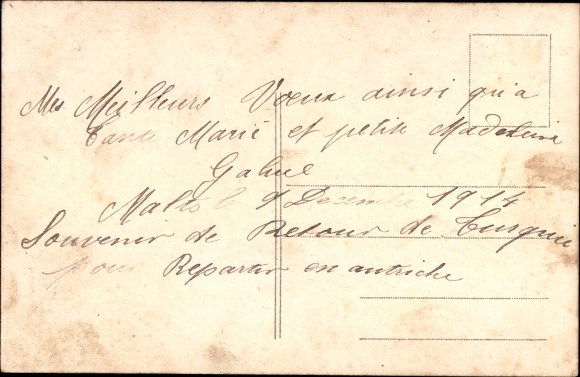 Mes Meilleurs Voeux ainsi qu'a
tante Marie et petite Madeleine
Malte le 9 Decembre 1914
Souvenir de Retour de Turquie
pour Repartir en autriche